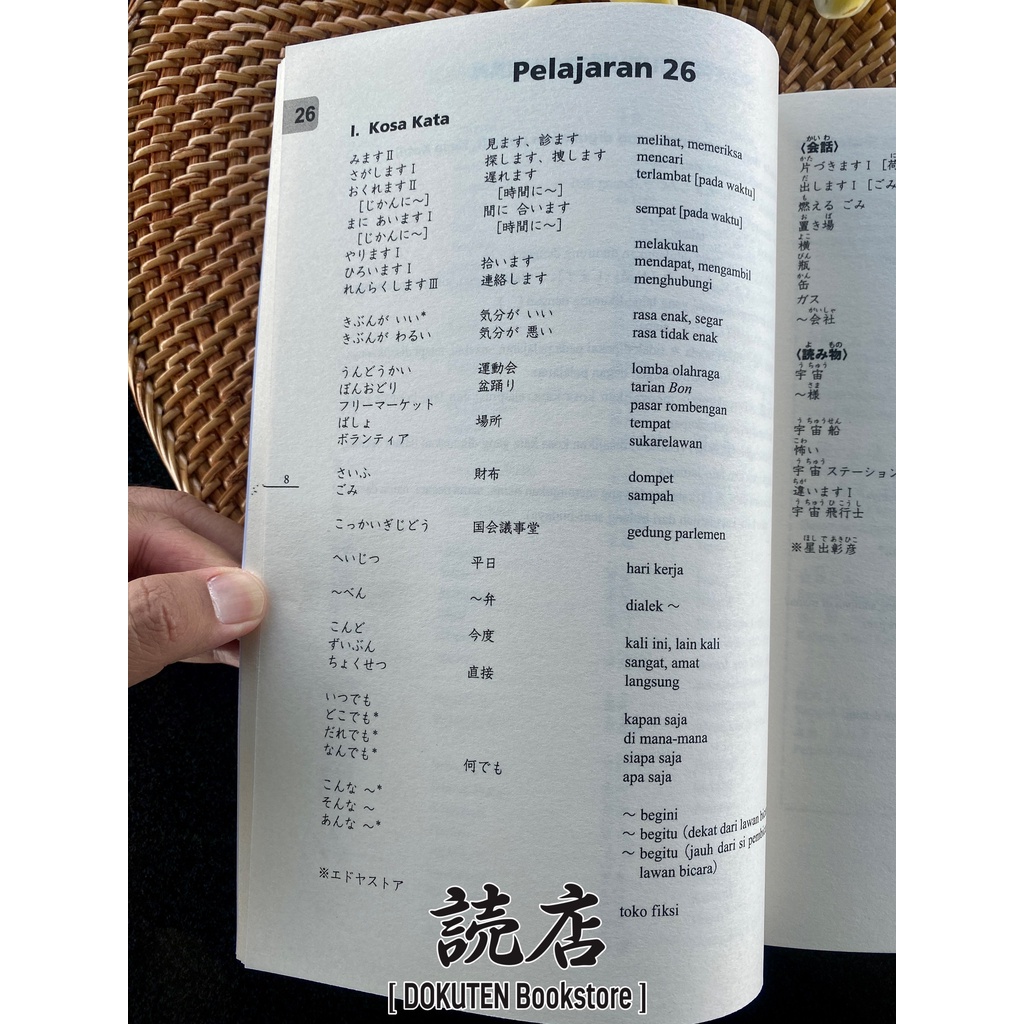 Pelajaran 26
26
I. Kosa Kata
みますⅡ 見ます、診ます melihat, memeriksa
さがしますⅠ 探します、捜します mencari
おくれますⅡ 遅れます terlambat [pada waktu]
[じかんに~] [時間に~]
まに あいますⅠ 間に 合います sempat [pada waktu]
[じかんに~] [時間に~]
やりますⅠ melakukan
ひろいますⅠ 拾います mendapat, mengambil
れんらくしますⅢ 連絡します menghubungi
きぶんが いい* 気分が いい rasa enak, segar
きぶんが わるい 気分が 悪い rasa tidak enak
うんどうかい 運動会 lomba olahraga
ぼんおどり 盆踊り tarian Bon
フリーマーケット pasar rombengan
ばしょ 場所 tempat
ボランティア sukarelawan
さいふ 財布 dompet
ごみ sampah
8
こっかいぎじどう 国会議事堂 gedung parlemen
へいじつ 平日 hari kerja
~べん ~弁 dialek ~
こんど 今度 kali ini, lain kali
ずいぶん sangat, amat
ちょくせつ 直接 langsung
いつでも kapan saja
どこでも* di mana-mana
だれでも* siapa saja
なんでも* 何でも apa saja
こんな ~* ~ begini
そんな ~ ~ begitu (dekat dari lawan
あんな ~* ~ begitu (jauh dari si
lawan bicara)
※エドヤストア toko fiksi
〈会話〉
かいわ
片づきますⅠ
かた
出しますⅠ [ごみ
だ
燃える ごみ
も
置き場
お ば
横
よこ
瓶
びん
缶
かん
ガス
~会社
がいしゃ
〈読み物〉
よ もの
宇宙
うちゅう
~様
さま
宇宙船
うちゅうせん
怖い
こわ
宇宙ステーション
うちゅう
違いますⅠ
ちが
宇宙飛行士
うちゅうひこうし
※星出彰彦
ほしであきひこ
読店
[ DOKUTEN Bookstore ]